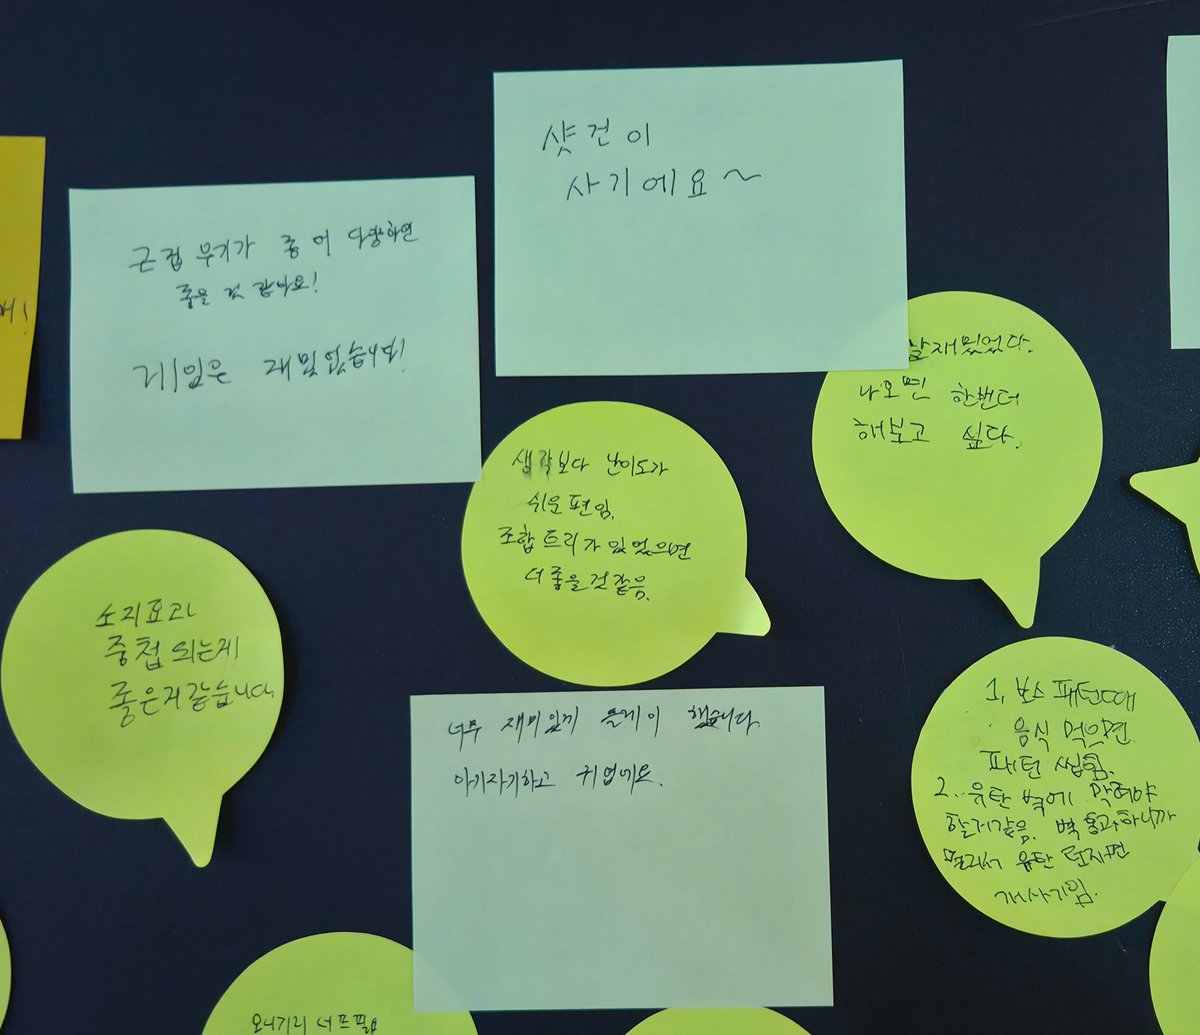 샷건이
사기에요~
근접 무기가 좀 더 다양하면
좋을 것 같아요!
게임은 재밌었습니다!
재밌었다.
나오면 한번더
해보고 싶다.
생각보다 난이도가
쉬운편임.
조합 트리가 있었으면
더 좋을것 같음.
소리효과
중첩 되는게
좋은거같습니다.
너무 재미있게 플레이 했습니다.
아기자기하고 귀엽네요.
1. 보스 패턴때
음식 먹으면
패턴 씹힘.
2. 유탄 벽에 막혀야
할거같음. 벽 통과하니까
멀리서 유탄 던지면
개사기임.
오니기리 너프필요